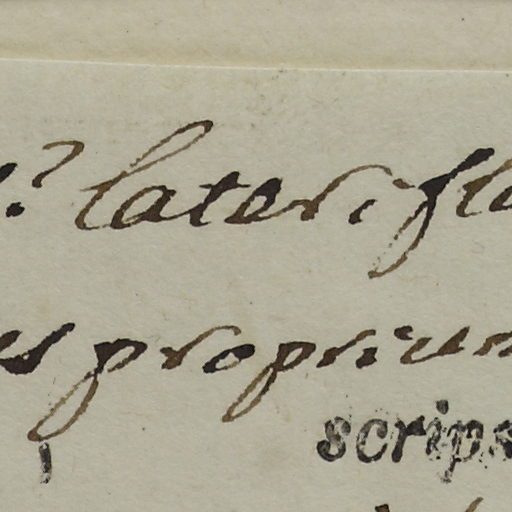 ? lateriflo
es proprium
scrips